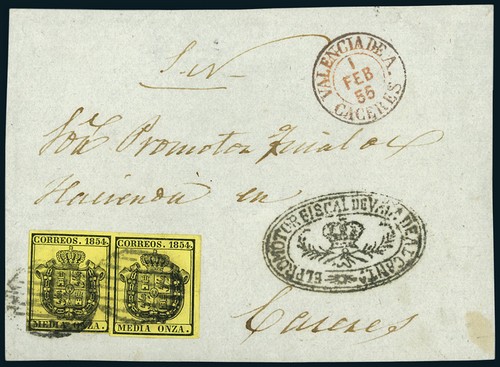 VALENCIA DE A.
1
FEB
56
CACERES
S. N.
Sor. Promotor Fiscal de
Hacienda en
EL PROMOTOR FISCAL DE VALA DE ALCANTA
CORREOS. 1854.
MEDIA ONZA.
CORREOS. 1854.
MEDIA ONZA.
Caceres